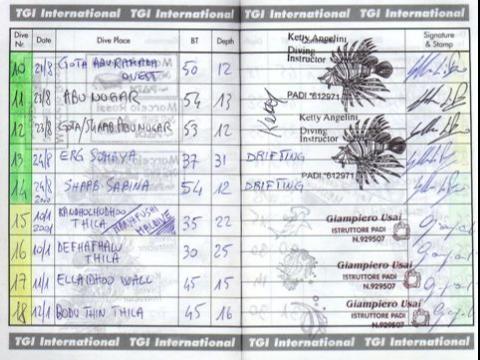 TGI International TGI International TGI International TGI International
Dive Nr. Date Dive Place BT Depth Signature & Stamp
10 21/8 GOTA ABU RAMADA OVEST 50 12
Ketty Angelini
Diving Instructor
PADI *612971
11 21/8 ABU NUGAR 54 13
12 23/8 GOTA/SHAAB ABU NUGAR 53 12
Ketty
Ketty Angelini
Diving Instructor
PADI *612971
13 24/8 ERG SOMAYA 37 31 DRIFTING
14 24/8 2000 SHAAB SABINA 54 12 DRIFTING
15 10/1 2001 KANDHOLHUDHOO THILA 35 22
Giampiero Usai
ISTRUTTORE PADI
N.929507
16 10/1 THILA 30 25
17 11/1 ELLAIDHOO WALL 45 15
Giampiero Usai
ISTRUTTORE PADI
N.929507
18 12/1 BODU THIN THILA 45 16
Giampiero Usai
ISTRUTTORE PADI
N.929507
TGI International TGI International TGI International TGI International